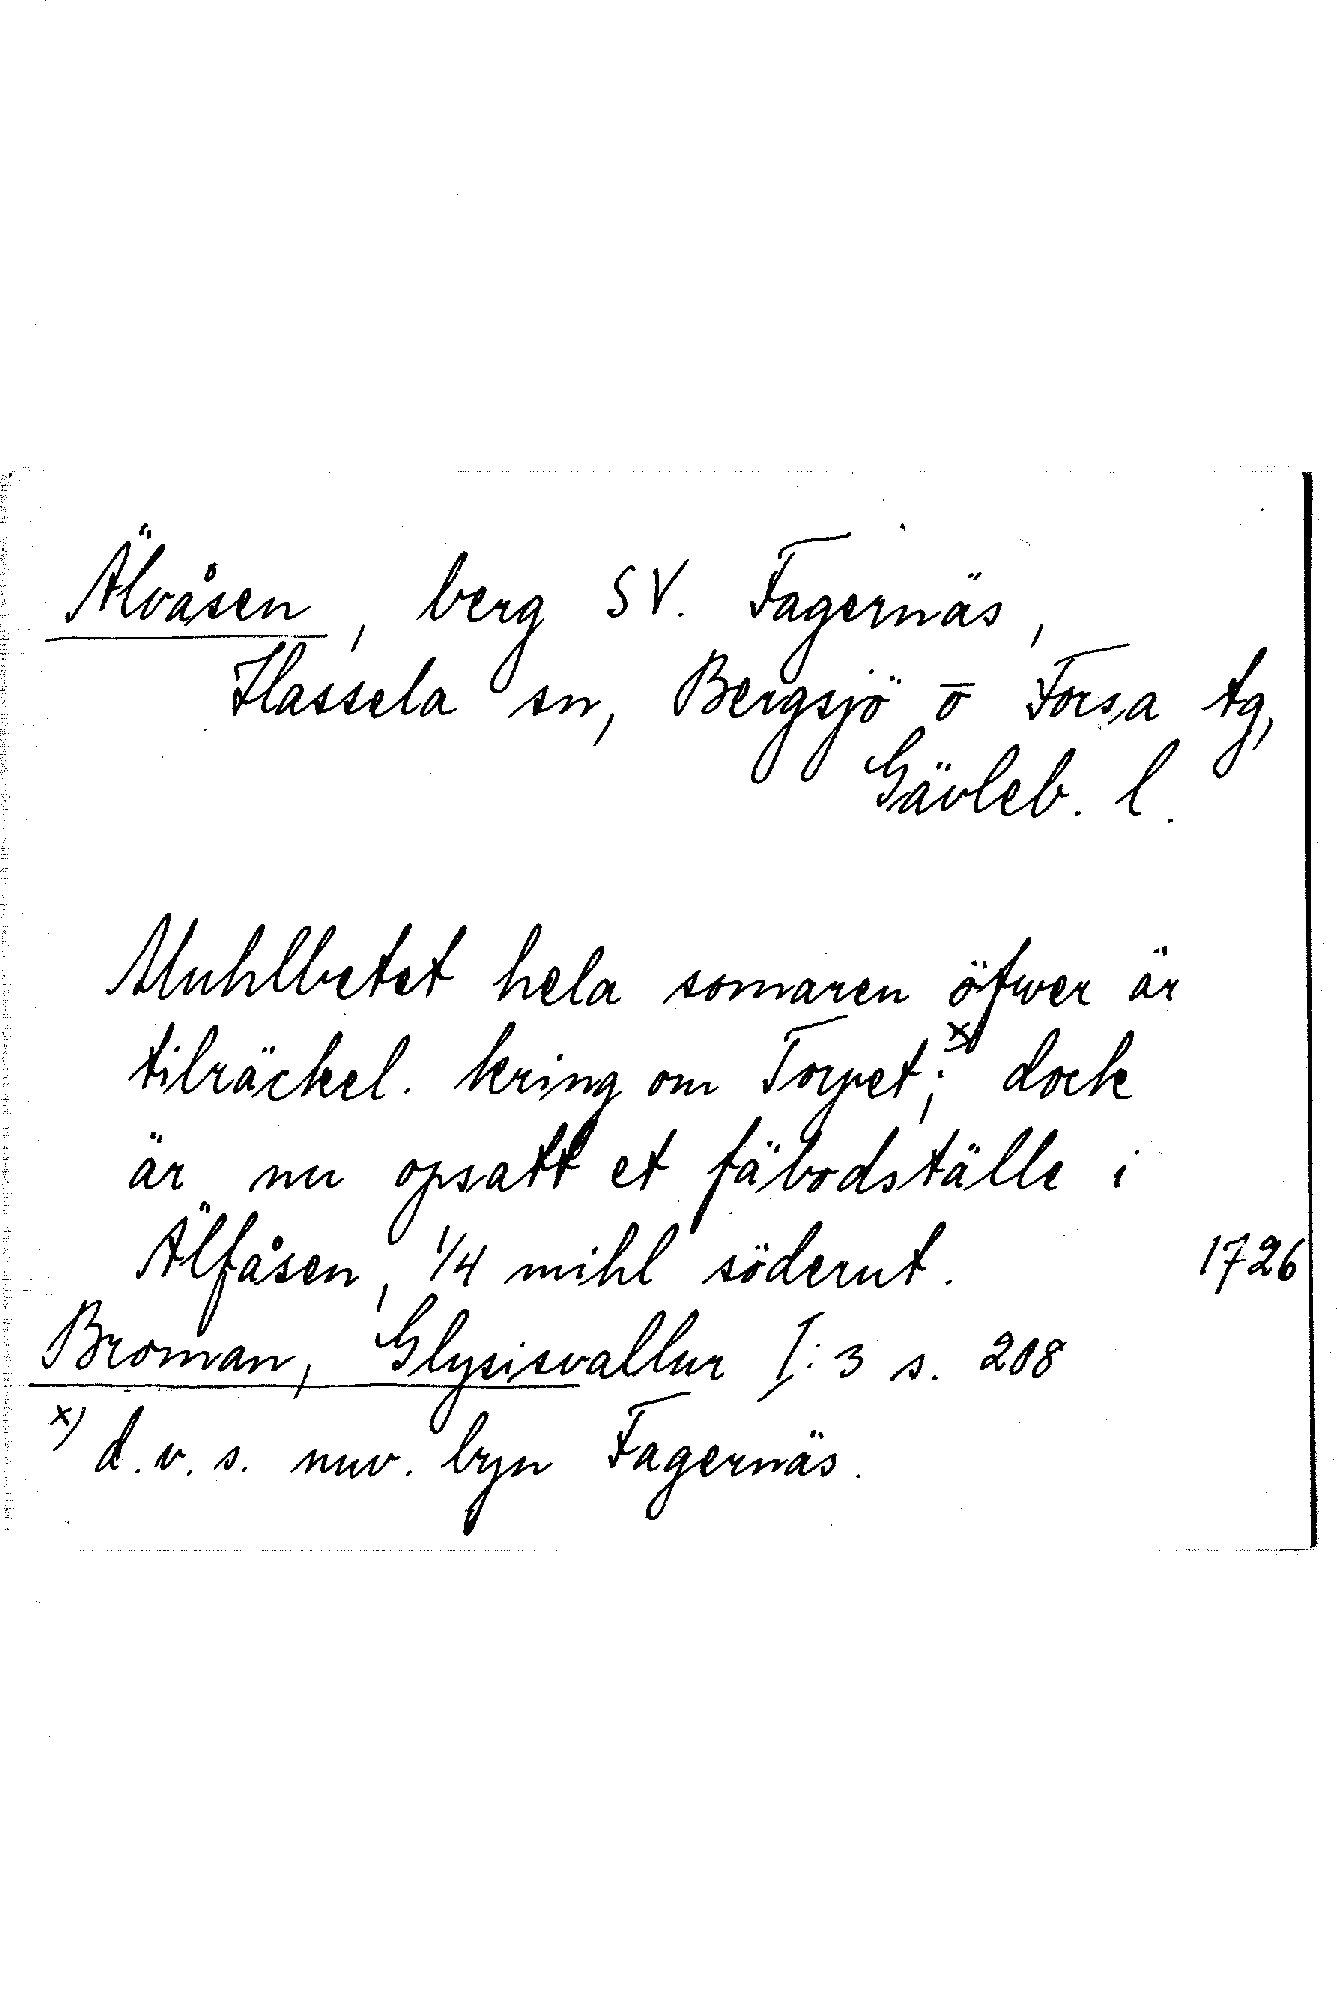 Älvåsen, berg SV. Fagernäs,
Hassela sn, Bergsjö ō Forsa tg,
Gävleb. l.
Muhlbetet hela somaren öfwer är
tilräckel. kring om Torpet;x) dock
är nu opsatt et fäbodställe i
Älfåsen, 1/4 mihl söderut. 1726
Broman, Glysisvallur I:3 s. 208
x) d.v.s. nuv. byn Fagernäs.